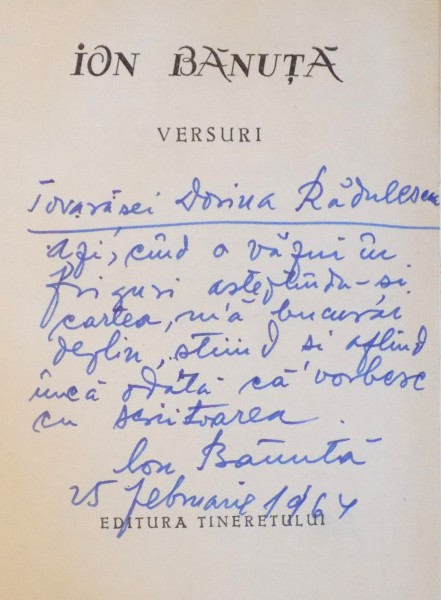 ION BĂNUȚĂ
VERSURI
Tovarășei Dorina Rădulescu
Azi, cînd o văzui în
friguri așteptîndu-și
cartea, mă bucurai
deplin, știind și aflînd
încă odată că vorbesc
cu scriitoarea.
Ion Bănuță
25 februarie 1964
EDITURA TINERETULUI